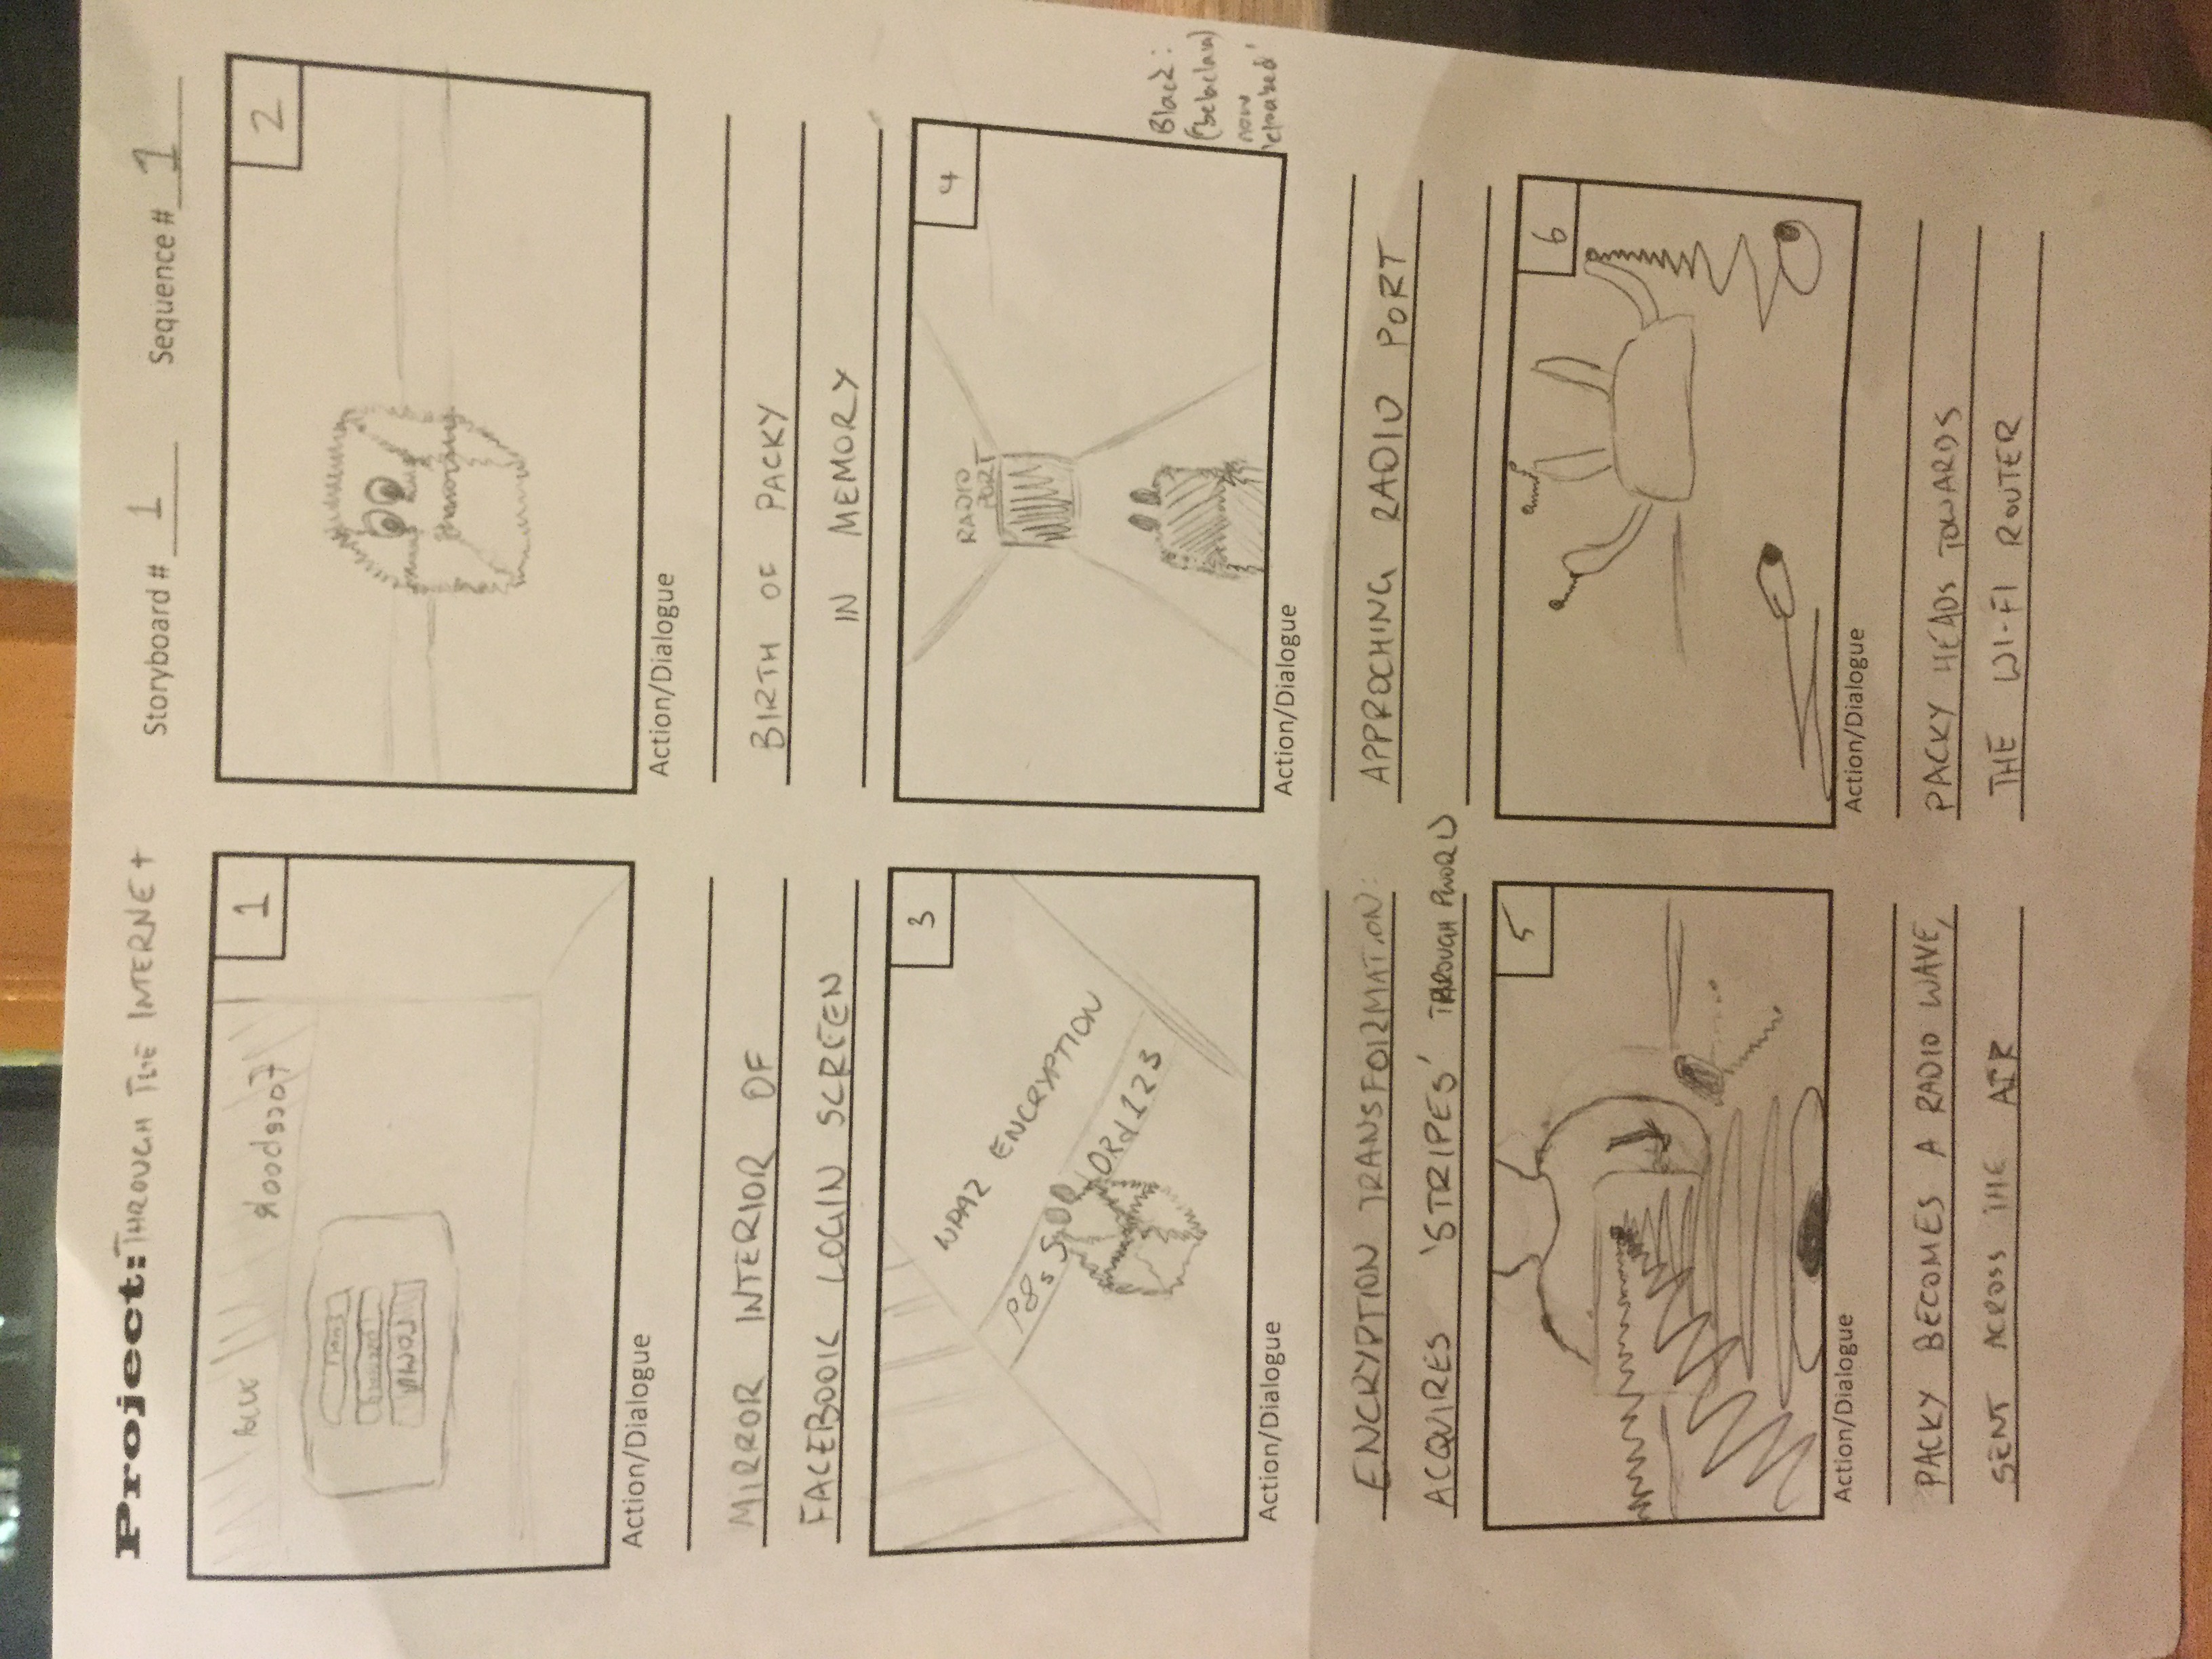 Project: THROUGH THE INTERNET
Storyboard # 1 Sequence # 1
1
BLUE
Facebook
Email
Password
LOGIN
Action/Dialogue
MIRROR INTERIOR OF
FACEBOOK LOGIN SCREEN
2
Action/Dialogue
BIRTH OF PACKY
IN MEMORY
3
WPA2 ENCRYPTION
ORd123
Action/Dialogue
ENCRYPTION TRANSFORMATION:
ACQUIRES 'STRIPES' THROUGH PWORD
4
RADIO
PORT
Black:
(belaclava)
now
'cloaked'
Action/Dialogue
APPROCHING RADIO PORT
5
Action/Dialogue
PACKY BECOMES A RADIO WAVE,
SENT ACROSS THE AIR
6
Action/Dialogue
PACKY HEADS TOWARDS
THE WI-FI ROUTER